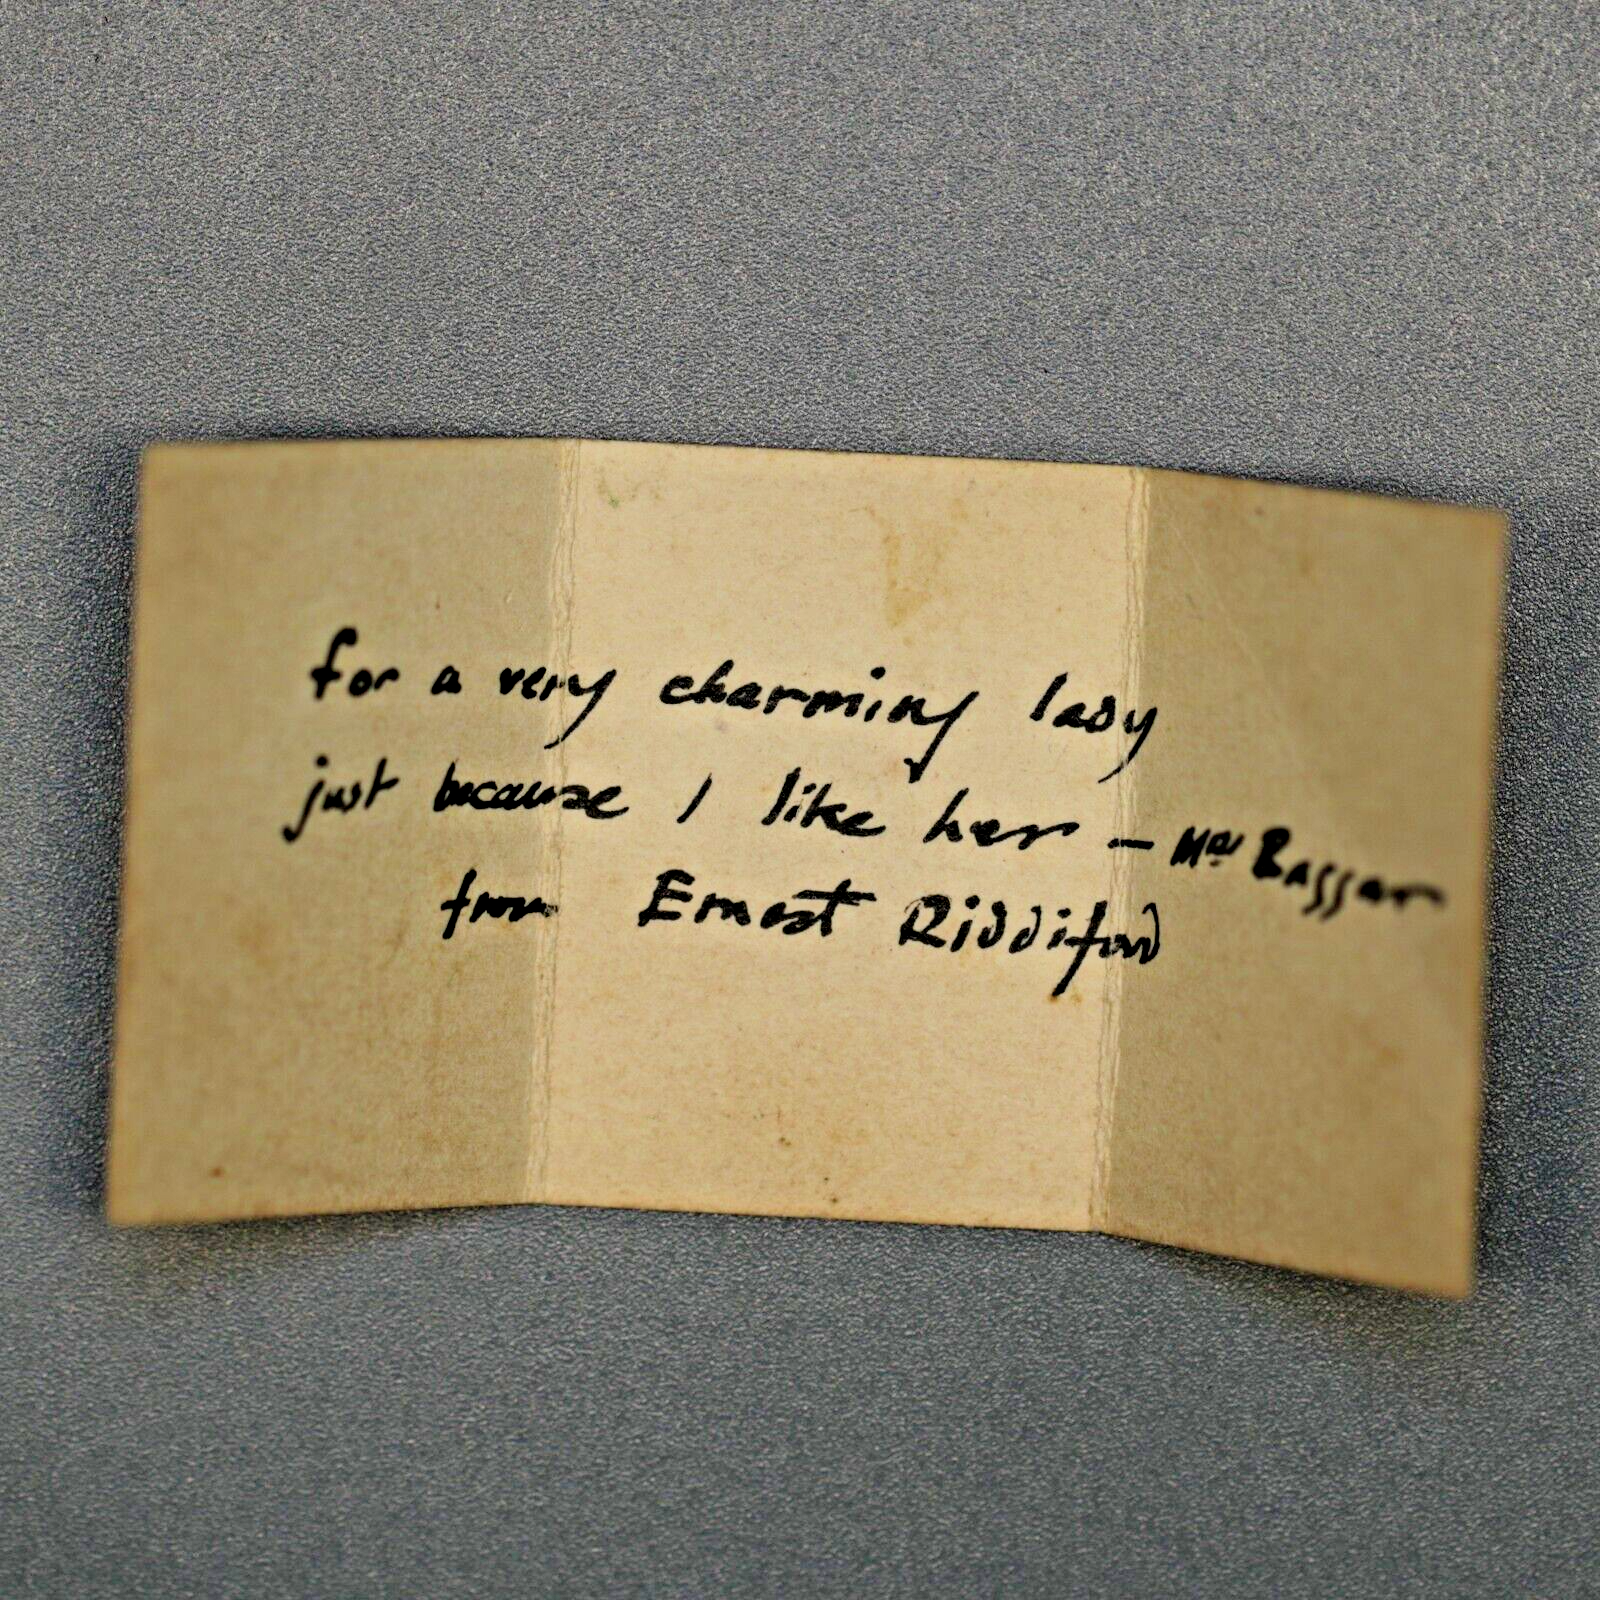 for a very charming lady
just because I like her — Mrs
from Ernest Riddiford